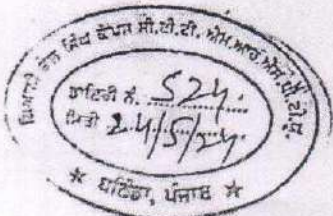 ਗਿਆਨੀ ਗੁਰਦਿੱਤ ਸਿੰਘ ਸੀ.ਟੀ.ਟੀ. ਐਮ.ਆਰ.ਐਸ.ਪੀ.ਟੀ.ਯੂ.
ਡਾਇਰੀ ਨੰ. 524
ਮਿਤੀ 24/5/24
* ਬਠਿੰਡਾ, ਪੰਜਾਬ *